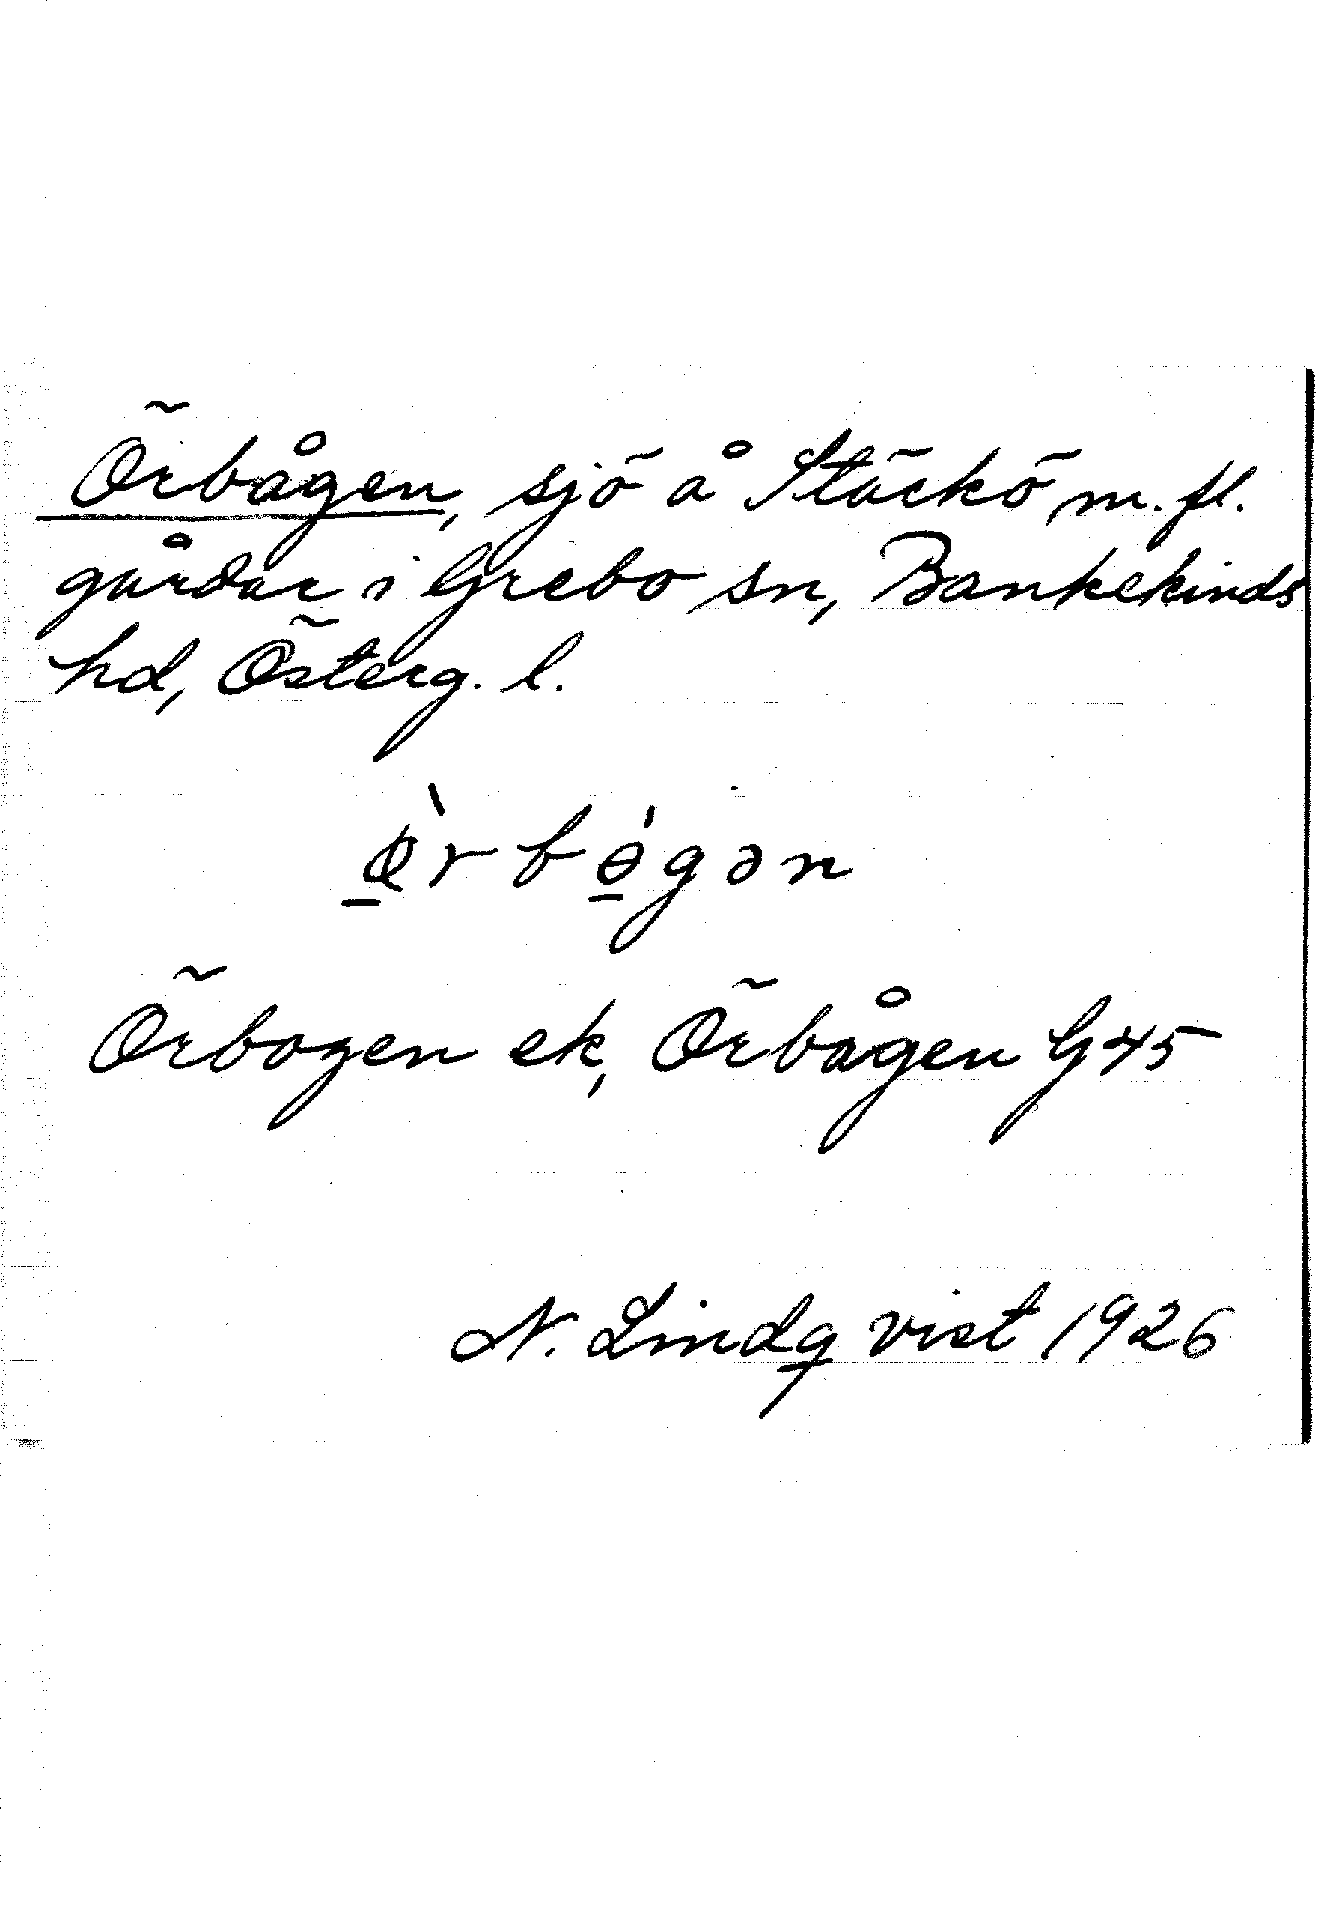 Örbågen, sjö å Stäckö m. fl.
gårdar i Grebo sn, Bankekinds
hd, Österg. l.
ø̀rbógən
Örbogen ek, Örbågen G45
N. Lindqvist 1926